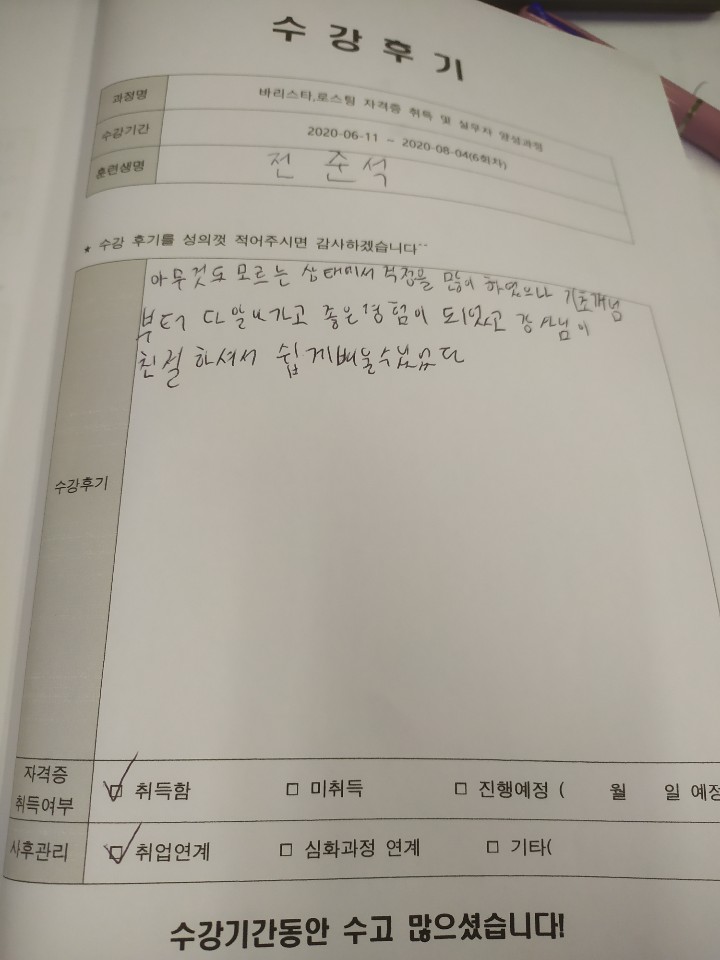 수강후기
과정명 바리스타,로스팅 자격증 취득 및 실무자 양성과정
수강기간 2020-06-11 ~ 2020-08-04(6회차)
훈련생명 전준석
★ 수강 후기를 성의껏 적어주시면 감사하겠습니다^^
아무것도 모르는 상태에서 걱정을 많이 하였으나 기초개념
부터 다 알고가고 좋은경험이 되었고 강사님이
친절하셔서 쉽게배울수있었다
수강후기
자격증
취득여부 ☑ 취득함 □ 미취득 □ 진행예정 ( 월 일 예정
사후관리 ☑ 취업연계 □ 심화과정 연계 □ 기타(
수강기간동안 수고 많으셨습니다!